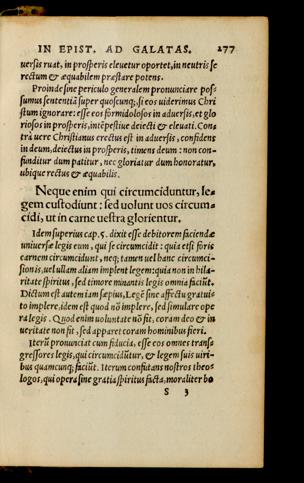 IN EPIST. AD GALATAS. 277
uersis ruat, in prosperis eleuetur oportet, in neutris se
rectum & æquabilem præstare potens.
Proinde sine periculo generalem pronunciare pos=
sumus sententiã super quoscunq;, si eos uiderimus Chri
stum ignorare: esse eos formidolosos in aduersis, et glo
riosos in prosperis, intẽpestiue deiecti & eleuati. Con=
trà uero Christianus erectus est in aduersis, confidens
in deum, deiectus in prosperis, timens deum: non con=
funditur dum patitur, nec gloriatur dum honoratur,
ubique rectus & æquabilis.
Neque enim qui circumciduntur, le=
gem custodiunt: sed uolunt uos circum=
cidi, ut in carne uestra glorientur.
Idem superius cap. 5. dixit esse debitorem faciendæ
uniuersæ legis eum, qui se circumcidit: quia etsi foris
carnem circumcidunt, neq; tamen uel hanc circumci=
sionis, uel ullam aliam implent legem: quia non in hila=
ritate spiritus, sed timore minantis legis omnia faciũt.
Dictum est autem iam sæpius, Legẽ sine affectu gratui=
to implere, idem est quod nõ implere, sed simulare ope
ra legis. Quod enim uoluntate nõ fit, coram deo & in
ueritate non fit, sed apparet coram hominibus fieri.
Iterũ pronunciat cum fiducia, esse eos omnes transs
gressores legis, qui circumcidũtur, & legem suis uiri=
bus quamcunq; faciũt. Iterum confutans nostros theo=
logos, qui opera sine gratia spiritus facta, moraliter bo
S 3